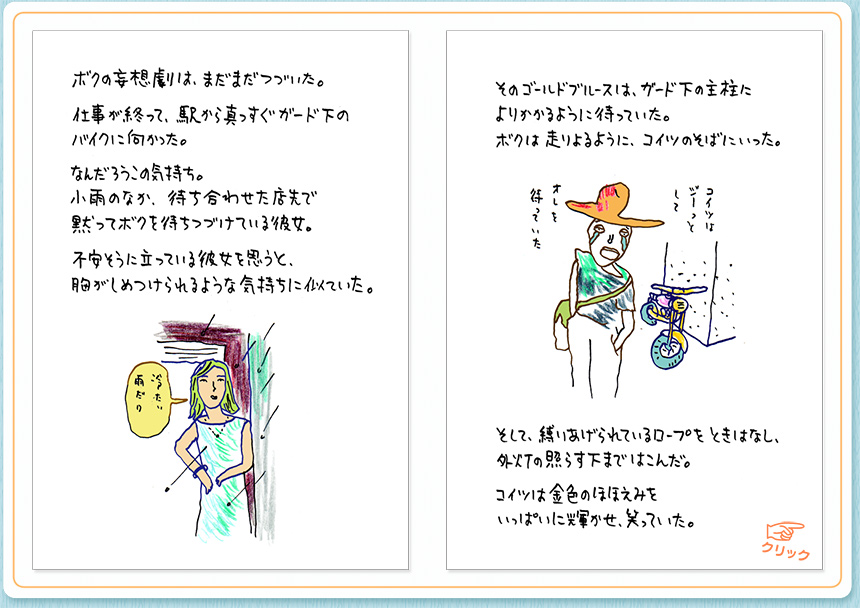 ボクの妄想劇は、まだまだつづいた。
仕事が終って、駅から真っすぐガード下の
バイクに向かった。
なんだろうこの気持ち。
小雨のなか、待ち合わせた店先で
黙ってボクを待ちつづけている彼女。
不安そうに立っている彼女を思うと、
胸がしめつけられるような気持ちに似ていた。
冷たい
雨だワ
そのゴールドブルースは、ガード下の主柱に
よりかかるように待っていた。
ボクは走りよるように、コイツのそばにいった。
コイツは
ジーっと
して
オレを
待っていた
そして、縛りあげられているロープをときはなし、
外灯の照らす下まではこんだ。
コイツは金色のほほえみを
いっぱいに輝かせ、笑っていた。
クリック